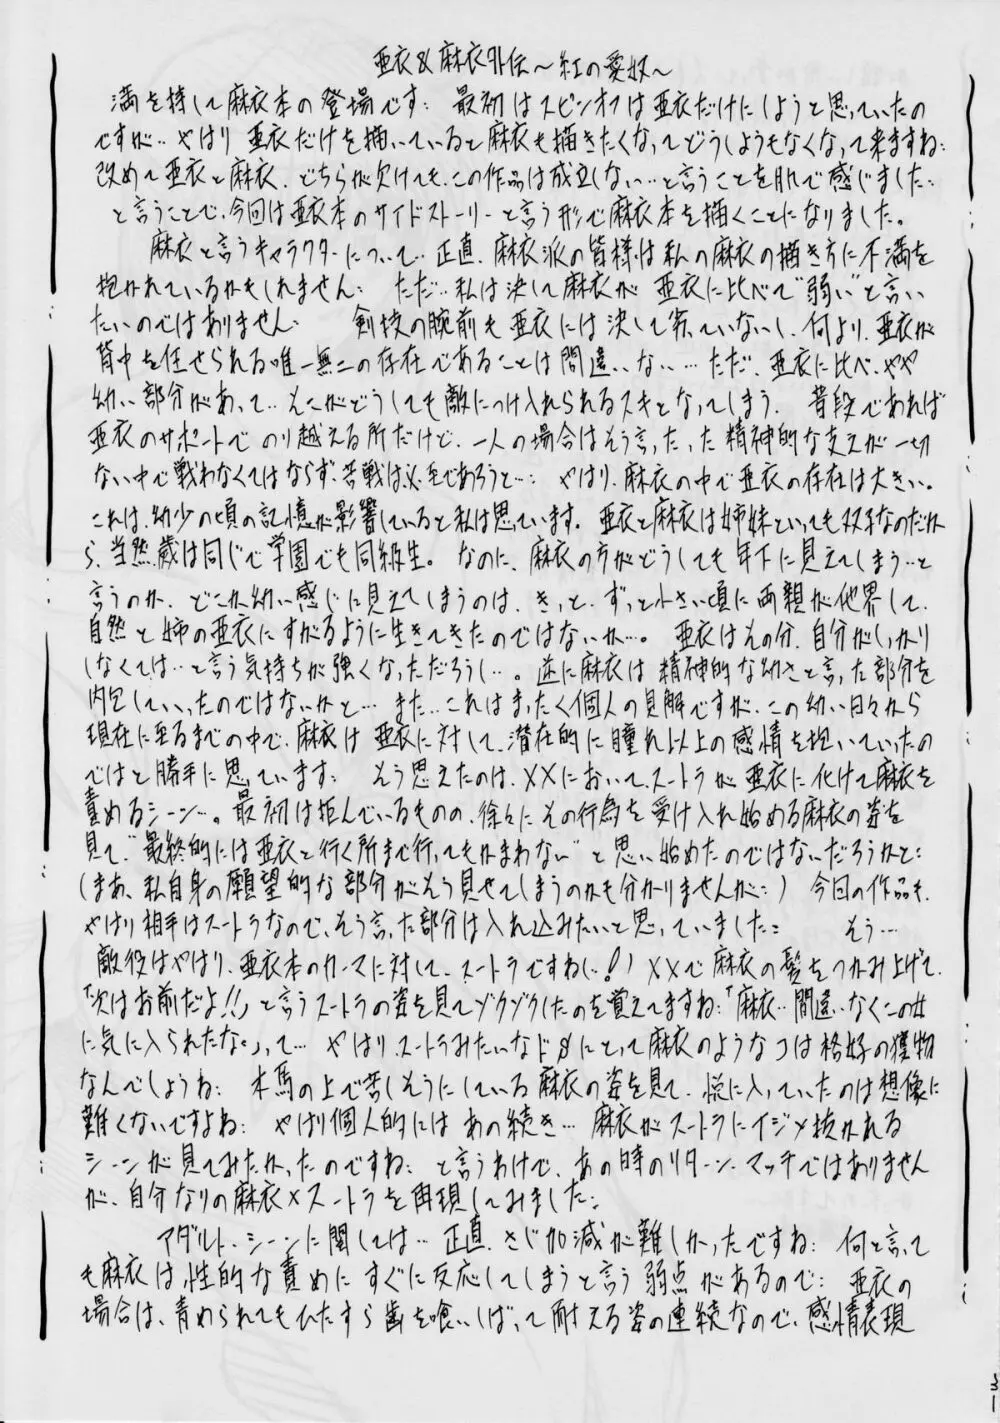 亜衣&麻衣外伝～紅の愛奴～
満を持して麻衣本の登場です: 最初はスピンオフは亜衣だけにしようと思っていたの
ですが‥やはり 亜衣だけを描いていると麻衣も描きたくなってどうしようもなくなって来ますね:
改めて亜衣と麻衣、どちらが欠けても、この作品は成立しない‥と言うことを肌で感じました:
と言うことで、今回は亜衣本のサイドストーリーと言う形で麻衣本を描くことになりました。
麻衣と言うキャラクターについて‥正直、麻衣派の皆様は私の麻衣の描き方に不満を
抱かれているかもしれません: ただ‥私は決して麻衣が 亜衣に比べて"弱い"と言い
たいのではありません: 剣技の腕前も亜衣には決して劣っていないし、何より、亜衣が
背中を任せられる唯一無二の存在であることは間違いない… ただ、亜衣に比べ、やや
幼い部分があって‥そこがどうしても敵につけ入れられるスキとなってしまう。 普段であれば
亜衣のサポートでのり越える所だけど、一人の場合はそう言った精神的な支えが一切
ない中で戦わなくてはならず、苦戦は必至であろうと…: やはり、麻衣の中で亜衣の存在は大きい。
これは、幼少の頃の記憶が影響していると私は思っています。 亜衣と麻衣は姉妹といっても双子なのだか
ら、当然歳は同じで学園でも同級生。 なのに、麻衣の方がどうしても年下に見えてしまう‥と
言うのか、どこか幼い感じに見えてしまうのは、きっと、ずっと小さい頃に両親が他界して、
自然と姉の亜衣にすがるように生きてきたのではないか…。 亜衣はその分、自分がしっかり
しなくては‥と言う気持ちが強くなっただろうし…。逆に麻衣は精神的な幼さと言った部分を
内包していったのではないかと… また‥これはまったく個人の見解ですが、この幼い日々から
現在に至るまでの中で、麻衣は 亜衣に対して、潜在的に憧れ以上の感情を抱いていったの
ではと勝手に思っています: そう思えたのは、××において、スートラが亜衣に化けて麻衣を
責めるシーン…。最初は拒んでいるものの、徐々にその行為を受け入れ始める麻衣の姿を
見て、"最終的には亜衣と行く所まで行ってもかまわない"と思い始めたのではないだろうかと:
(まあ、私自身の願望的な部分がそう見せてしまうのかも分かりませんが:) 今回の作品も、
やはり相手はスートラなので、そう言った部分は入れ込みたいと思っていました: そう…
敵役はやはり、亜衣本のカーマに対して、スートラですねぃ!)××で麻衣の髪をつかみ上げて、
「次はお前だよ!!」と言うスートラの姿を見てゾクゾクしたのを覚えてますね:「麻衣‥間違いなくこの女
に気に入られたな。」って… やはり、スートラみたいなドSにとって麻衣のようなコは格好の獲物
なんでしょうね: 木馬の上で苦しそうにしている麻衣の姿を見て、悦に入っていたのは想像に
難くないですよね: やはり個人的にはあの続き… 麻衣がスートラにイジメ抜かれる
シーンが見てみたかったのですね: と言うわけで、あの時のリターン・マッチではありません
が、自分なりの麻衣×スートラを再現してみました:
アダルト・シーンに関しては‥正直、さじ加減が難しかったですね: 何と言って
も麻衣は性的な責めにすぐに反応してしまうと言う弱点があるので: 亜衣の
場合は、責められてもひたすら歯を喰いしばって耐える姿の連続なので、感情表現
31